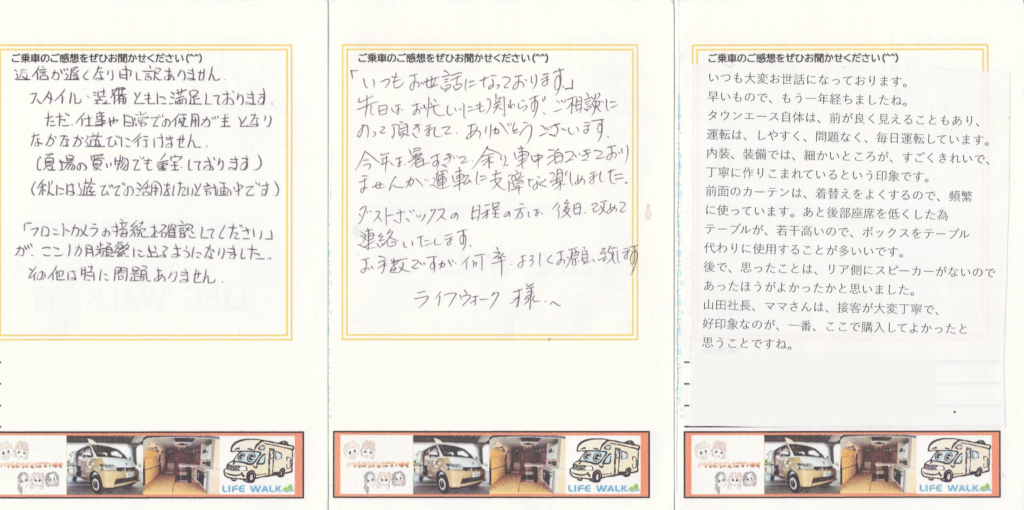 ご乗車のご感想をぜひお聞かせください(^^)
返信が遅くなり申し訳ありません.
スタイル・装備ともに満足しております.
ただ.仕事や日常での使用が主となり
なかなか遊びに行けません.
(夏場の買い物でも重宝しております)
(秋には遊びでの活用をしたいと計画中です)
「フロントカメラの接続を確認してください」
が、ここ1カ月頻繁に出るようになりました.
その他は特に問題ありません.
LIFE WALK
ご乗車のご感想をぜひお聞かせください(^^)
「いつもお世話になっております。」
先日は、お忙しいにも関わらず、ご相談に
のって頂きまして、ありがとうございます.
今年は暑すぎて、余り車中泊できており
ませんが、運転に支障なく楽しめました。
ダーストボックスの日程の方は、後日、改めて
連絡いたします.
お手数ですが、何卒、よろしくお願い致します
ライフウォーク 様へ
LIFE WALK
ご乗車のご感想をぜひお聞かせください(^^)
いつも大変お世話になっております。
早いもので、もう一年経ちましたね。
タウンエース自体は、前が良く見えることもあり、
運転は、しやすく、問題なく、毎日運転しています。
内装、装備では、細かいところが、すごくきれいで、
丁寧に作りこまれているという印象です。
前面のカーテンは、着替えをよくするので、頻繁
に使っています。あと後部座席を低くした為
テーブルが、若干高いので、ボックスをテーブル
代わりに使用することが多いいです。
後で、思ったことは、リア側にスピーカーがないので
あったほうがよかったかと思いました。
山田社長、ママさんは、接客が大変丁寧で、
好印象なのが、一番、ここで購入してよかったと
思うことですね。
LIFE WALK